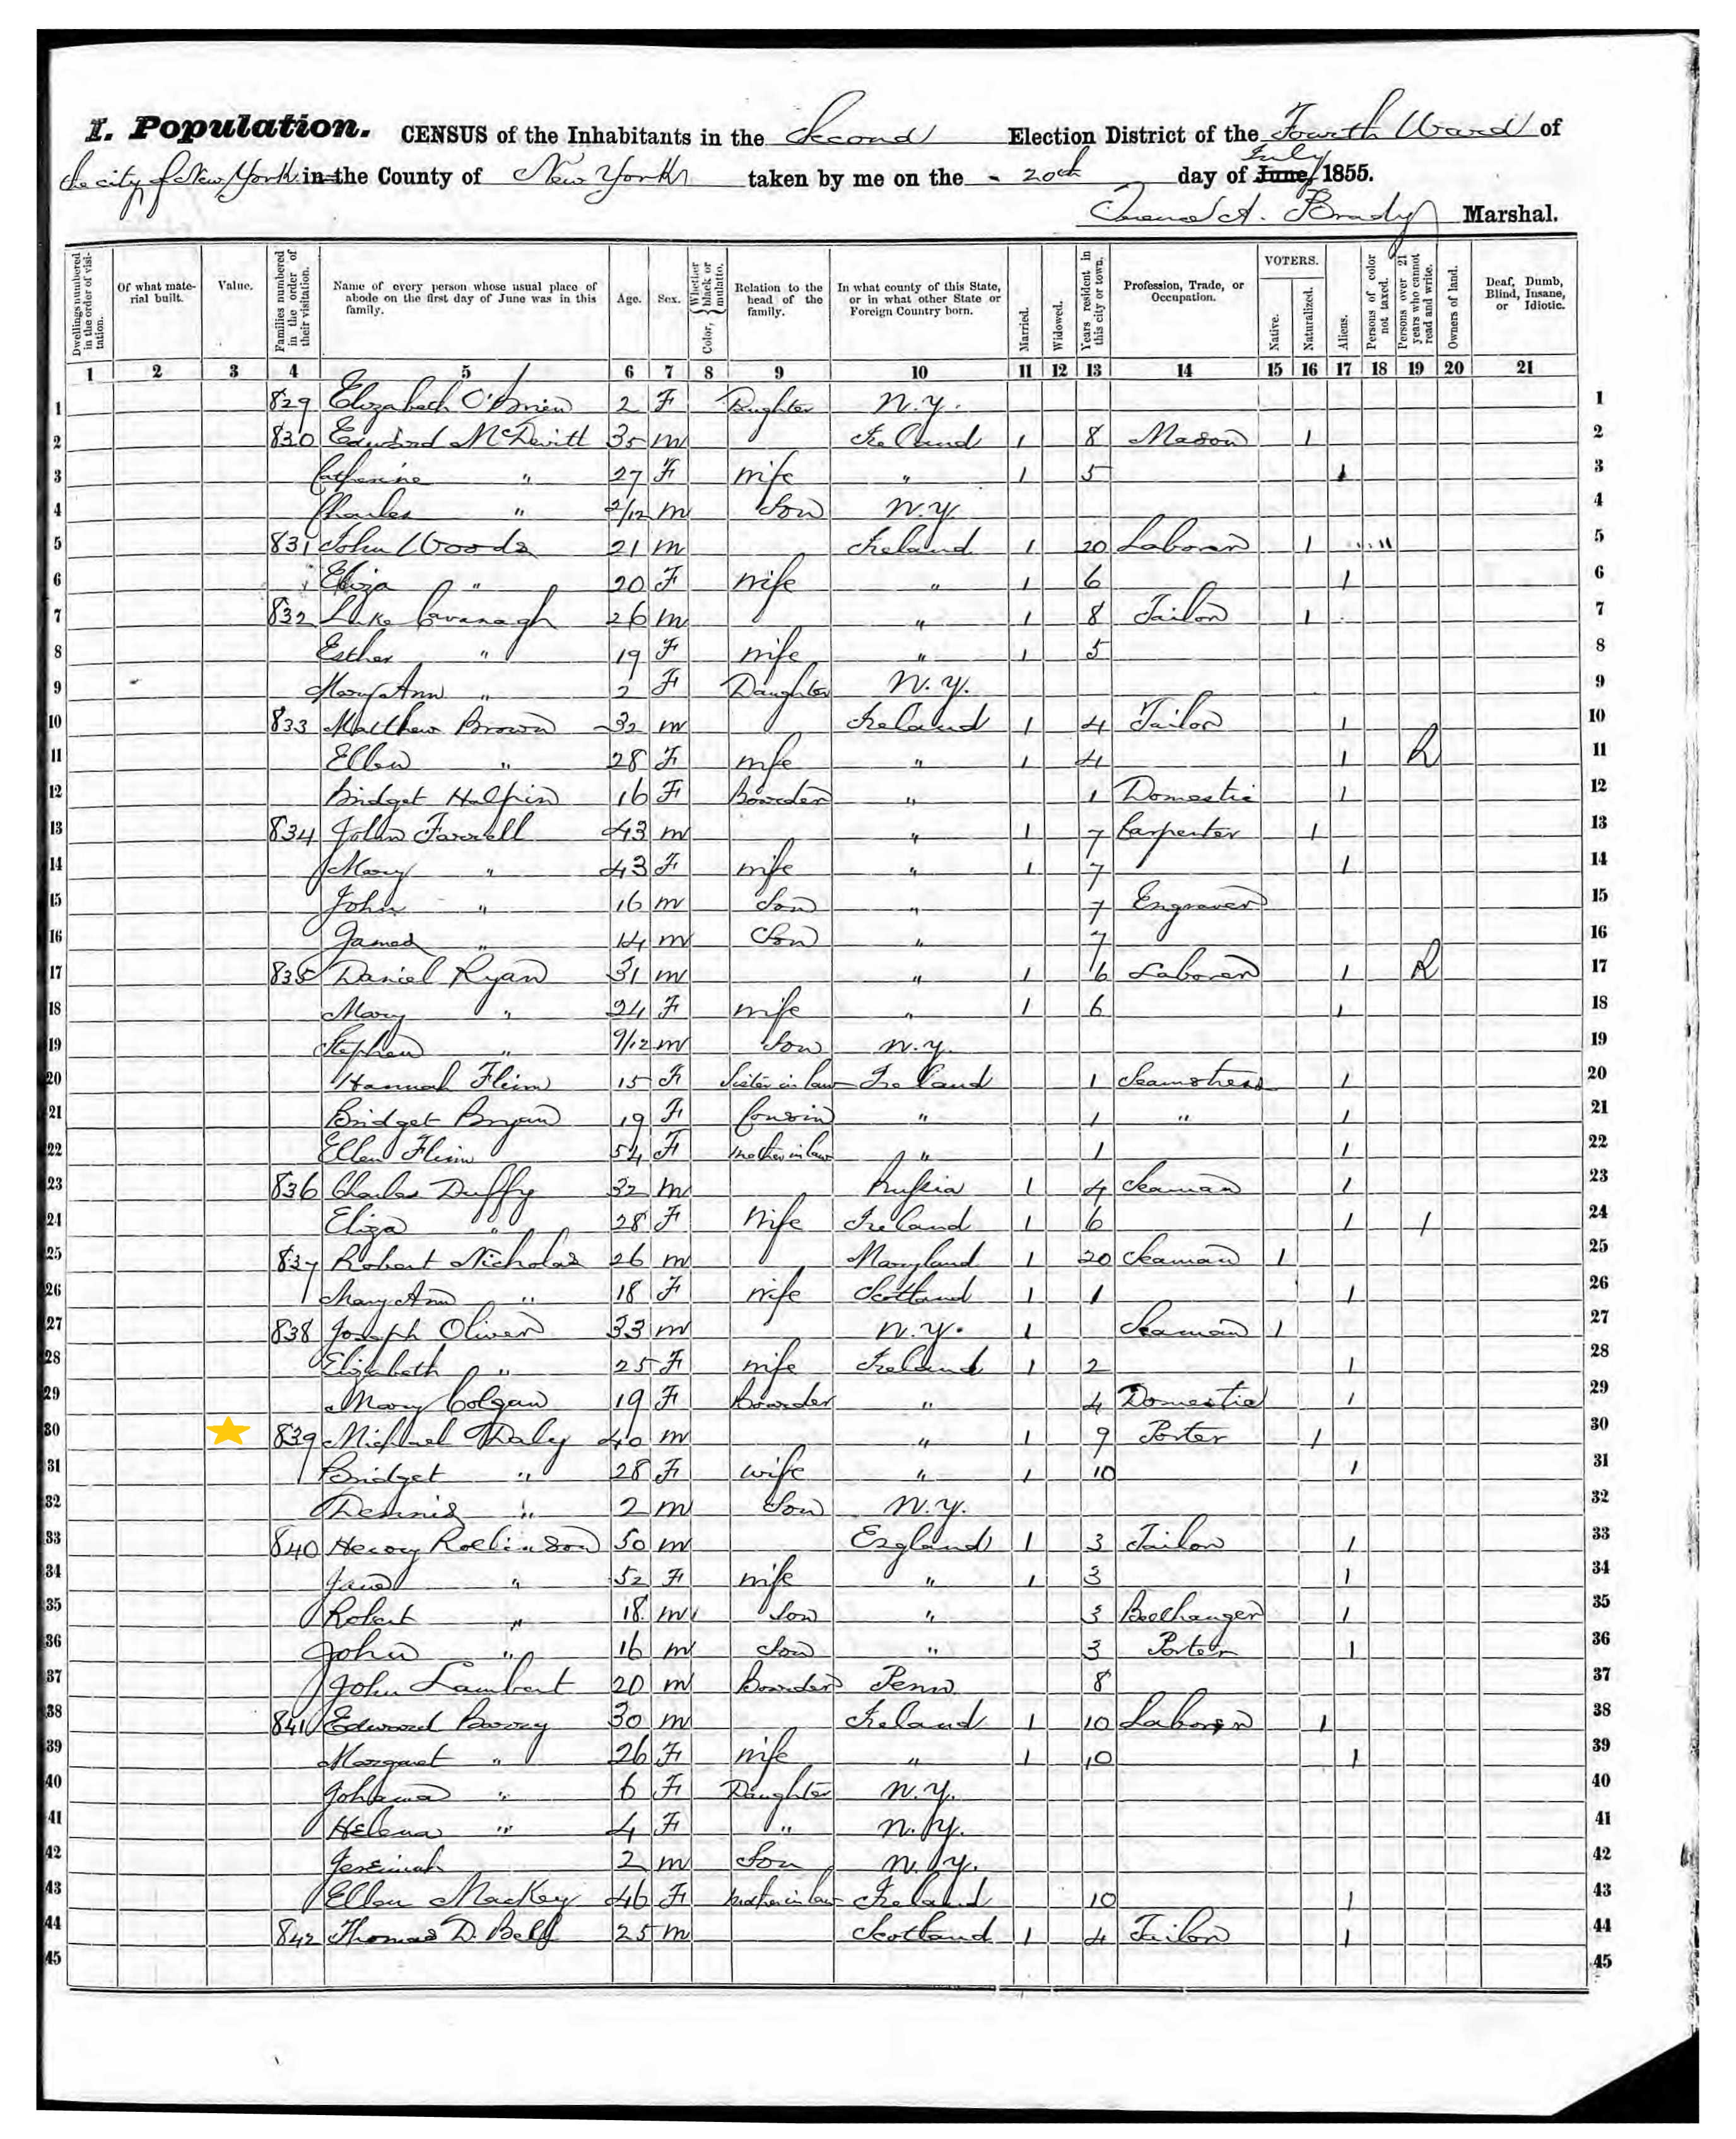 I. Population. CENSUS of the Inhabitants in the Second Election District of the Fourth Ward of
the city of New York in the County of New York taken by me on the 20th day of June, July 1855.
A. Brady Marshal.
Dwellings numbered in the order of visitation.
Of what material built.
Value.
Families numbered in the order of their visitation.
Name of every person whose usual place of abode on the first day of June was in this family.
Age.
Sex.
Color, Whether black or mulatto.
Relation to the head of the family.
In what county of this State, or in what other State or Foreign Country born.
Married.
Widowed.
Years resident in this city or town.
Profession, Trade, or Occupation.
VOTERS.
Native.
Naturalized.
Aliens.
Persons of color not taxed.
Persons over 21 years who cannot read and write.
Owners of land.
Deaf, Dumb, Blind, Insane, or Idiotic.
1 2 3 4 5 6 7 8 9 10 11 12 13 14 15 16 17 18 19 20 21
1 829 Elizabeth O'Brien 2 F Daughter N.Y. 1
2 830 Edward McDevitt 35 m Ireland 1 8 Mason 1 2
3 Catherine " 27 F wife " 1 5 1 3
4 Charles " 2/12 m Son N.Y. 4
5 831 John Woods 21 m Ireland 1 20 Laborer 1 5
6 Eliza " 20 F wife " 1 6 1 6
7 832 Luke Cavanagh 26 m " 1 8 Tailor 1 7
8 Esther " 19 F wife " 1 5 8
9 Mary Ann " 2 F Daughter N.Y. 9
10 833 Matthew Brown 32 m Ireland 1 4 Tailor 1 10
11 Ellen " 28 F wife " 1 4 1 R 11
12 Bridget Halpin 16 F Boarder " 1 Domestic 1 12
13 834 John Farrell 43 m " 1 7 Carpenter 1 13
14 Mary " 43 F wife " 1 7 1 14
15 John " 16 m Son " 7 Engraver 15
16 James " 14 m Son " 7 16
17 835 Daniel Ryan 31 m " 1 6 Laborer 1 R 17
18 Mary " 24 F wife " 1 6 1 18
19 Stephen " 9/12 m Son N.Y. 19
20 Hannah 15 F Sister in law Ireland 1 Seamstress 1 20
21 Bridget Bryan 19 F Cousin " 1 " 1 21
22 Ellen 54 F Mother in law " 1 1 22
23 836 Charles Duffy 32 m 1 4 Seaman 1 23
24 Eliza " 28 F Wife Ireland 1 6 1 1 24
25 837 Robert Nicholas 26 m Maryland 1 20 Seaman 1 25
26 Mary Ann " 18 F wife Scotland 1 1 1 26
27 838 Joseph Oliver 33 m N.Y. 1 Seaman 1 27
28 Elizabeth " 25 F wife Ireland 1 2 1 28
29 Mary Colgan 19 F Boarder " 4 Domestic 1 29
30 839 Michael Daly 40 m " 1 9 Porter 1 30
31 Bridget " 28 F wife " 1 10 1 31
32 Dennis " 2 m Son N.Y. 32
33 840 Henry Rollinson 50 m England 1 3 Tailor 1 33
34 Jane " 52 F wife " 1 3 1 34
35 Robert " 18 m Son " 3 Bellhanger 1 35
36 John " 16 m Son " 3 Porter 1 36
37 John Lambert 20 m Boarder Penn 8 37
38 841 Edward Barry 30 m Ireland 1 10 Laborer 1 38
39 Margaret " 26 F wife " 1 10 1 39
40 Johanna " 6 F Daughter N.Y. 40
41 Helena " 4 F " N.Y. 41
42 Jeremiah 2 m Son N.Y. 42
43 Ellen Mackey 46 F Mother in law Ireland 10 1 43
44 842 Thomas D. Bell 25 m Scotland 1 4 Tailor 1 44
45 45